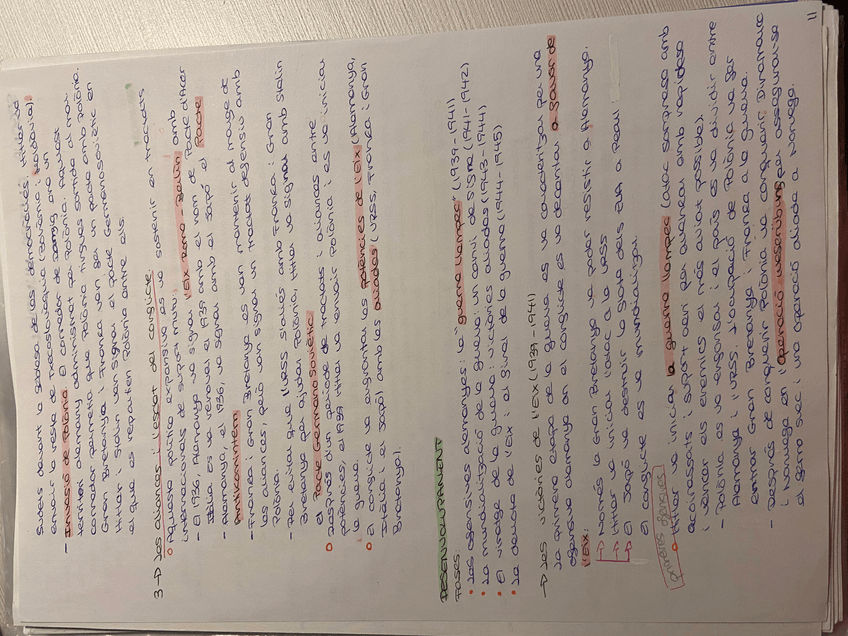 Sudets davant la sorpresa de les democràcies. Hitler va
envair la resta de Txecoslovàquia (Bohèmia i Moràvia).
- Invasió de Polònia. El corredor de Danzig era un
territori alemany administrat per Polònia. Aquest
corredor permetia que Polònia tingués sortida al mar.
Gran Bretanya i França van fer un pacte amb Polònia.
Hitler i Stalin van signar el pacte Germanosoviètic en
el que es reparteixen Polònia entre ells.
3 → Les aliances i l'esclat del conflicte.
Aquesta política expansiva es va sostenir en tractats
internacionals de suport mutu:
- El 1936, Alemanya va signar l'Eix Roma-Berlín amb
Itàlia es va renovar el 1939 amb el nom de Pacte d'Acer
- Alemanya, el 1936, va signar amb el Japó el Pacte
Antikomintern.
- França i Gran Bretanya es van mantenir al marge de
les aliances, però van signar un tractat defensiu amb
Polònia.
- Per evitar que l'URSS s'aliés amb França i Gran
Bretanya per ajudar Polònia, Hitler va signar amb Stalin
el Pacte Germanosoviètic.
Després d'un període de tractats i aliances entre
potències, el 1939 Hitler va envair Polònia i es va iniciar
la guerra.
El conflicte va enfrontar les potències de l'Eix (Alemanya,
Itàlia i el Japó) amb les aliades (URSS, França i Gran
Bretanya).
DESENVOLUPAMENT
Fases:
• Les ofensives alemanyes: la "guerra llampec" (1939-1941)
• La mundialització de la guerra: un canvi de signe (1941-1942)
• El viratge de la guerra: victòries aliades (1943-1944)
• La derrota de l'Eix i el final de la guerra (1944-1945)
→ Les victòries de l'Eix (1939-1941)
La primera etapa de la guerra es va caracteritzar per una
ofensiva alemanya on el conflicte es va decantar a favor de
l'Eix:
→ Només la Gran Bretanya va poder resistir a Alemanya.
→ Hitler va iniciar l'atac a la URSS
→ El Japó va destruir la flota dels EUA a Pearl
El conflicte es va mundialitzar.
primeres ofensives
Hitler va iniciar la guerra llampec (atac sorpresa amb
cuirassats i suport aeri per avançar amb rapidesa
i vèncer els enemics el més aviat possible).
- Polònia es va enfonsar i el país es va dividir entre
Alemanya i l'URSS. L'ocupació de Polònia va fer
entrar Gran Bretanya i França a la guerra.
- Després de conquerir Polònia va conquerir Dinamarca
i Noruega en l'Operació Weserübung per assegurar-se
el ferro suec i una operació aliada a Noruega.
11